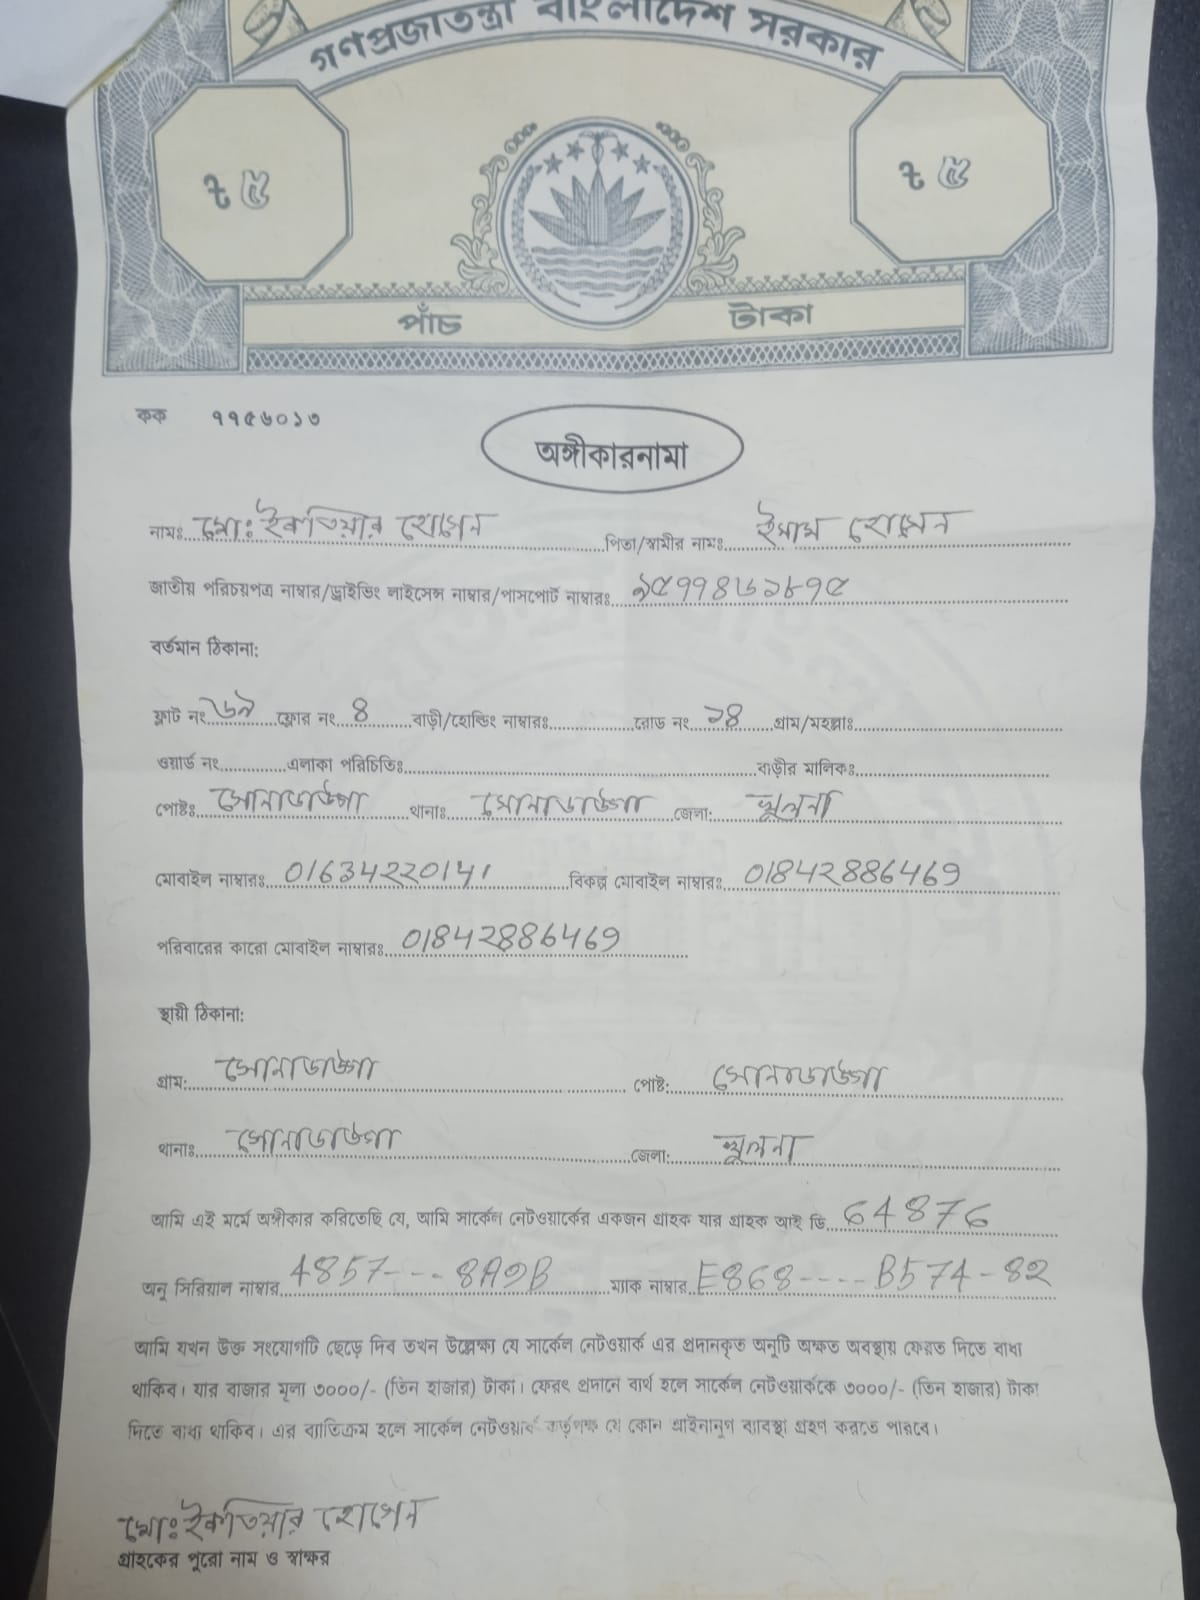 গণপ্রজাতন্ত্রী বাংলাদেশ সরকার
৳ ৫ ৳ ৫
পাঁচ টাকা
কক ৭৭৫৬০১৩
অঙ্গীকারনামা
নামঃ মোঃ ইকতিয়ার হোসেন পিতা/স্বামীর নামঃ ইমাম হোসেন
জাতীয় পরিচয়পত্র নাম্বার/ড্রাইভিং লাইসেন্স নাম্বার/পাসপোর্ট নাম্বারঃ ১৫৭৭৪৬১৮৭৫
বর্তমান ঠিকানা:
ফ্লাট নং ৬৯ ফ্লোর নং ৪ বাড়ী/হোল্ডিং নাম্বারঃ রোড নং ১৪ গ্রাম/মহল্লাঃ
ওয়ার্ড নং এলাকা পরিচিতিঃ বাড়ীর মালিকঃ
পোষ্টঃ সোনাডাঙ্গা থানাঃ সোনাডাঙ্গা জেলা: খুলনা
মোবাইল নাম্বারঃ 01634220141 বিকল্প মোবাইল নাম্বারঃ 01842886469
পরিবারের কারো মোবাইল নাম্বারঃ 01842886469
স্থায়ী ঠিকানা:
গ্রাম: সোনাডাঙ্গা পোষ্ট: সোনাডাঙ্গা
থানাঃ সোনাডাঙ্গা জেলা: খুলনা
আমি এই মর্মে অঙ্গীকার করিতেছি যে, আমি সার্কেল নেটওয়ার্কের একজন গ্রাহক যার গ্রাহক আই ডি 64876
অনু সিরিয়াল নাম্বার 4857---8A9B ম্যাক নাম্বার E868----B574-82
আমি যখন উক্ত সংযোগটি ছেড়ে দিব তখন উল্লেক্ষ্য যে সার্কেল নেটওয়ার্ক এর প্রদানকৃত অনুটি অক্ষত অবস্থায় ফেরত দিতে বাধ্য
থাকিব। যার বাজার মূল্য ৩০০০/- (তিন হাজার) টাকা। ফেরৎ প্রদানে ব্যর্থ হলে সার্কেল নেটওয়ার্ককে ৩০০০/- (তিন হাজার) টাকা
দিতে বাধ্য থাকিব। এর ব্যাতিক্রম হলে সার্কেল নেটওয়ার্ক কর্তৃপক্ষ যে কোন আইনানুগ ব্যাবস্থা গ্রহণ করতে পারবে।
মোঃ ইকতিয়ার হোসেন
গ্রাহকের পুরো নাম ও স্বাক্ষর